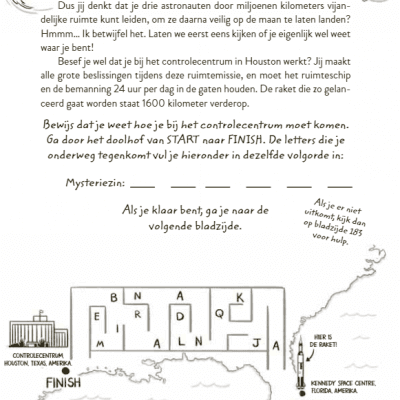 Dus jij denkt dat je drie astronauten door miljoenen kilometers vijan-
delijke ruimte kunt leiden, om ze daarna veilig op de maan te laten landen?
Hmmm... Ik betwijfel het. Laten we eerst eens kijken of je eigenlijk wel weet
waar je bent!
Besef je wel dat je bij het controlecentrum in Houston werkt? Jij maakt
alle grote beslissingen tijdens deze ruimtemissie, en moet het ruimteschip
en de bemanning 24 uur per dag in de gaten houden. De raket die zo gelan-
ceerd gaat worden staat 1600 kilometer verderop.
Bewijs dat je weet hoe je bij het controlecentrum moet komen.
Ga door het doolhof van START naar FINISH. De letters die je
onderweg tegenkomt vul je hieronder in dezelfde volgorde in:
Mysteriezin:
Als je klaar bent, ga je naar de
volgende bladzijde.
Als je er niet
uitkomt, kijk dan
op bladzijde 183
voor hulp.
B N A K
E R D Q
I
M A L N J A
CONTROLECENTRUM,
HOUSTON, TEXAS, AMERIKA
FINISH
HIER IS
DE RAKET!
KENNEDY SPACE CENTRE,
FLORIDA, AMERIKA.